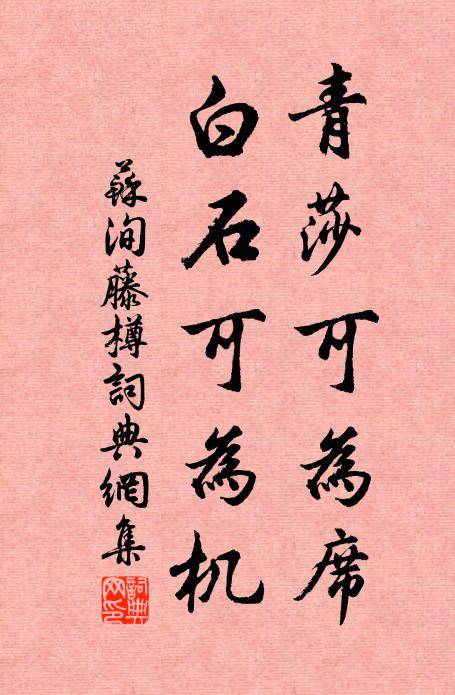 青莎可為席
白石可為机
蘇洵藤樽詞典網集
詞典網印